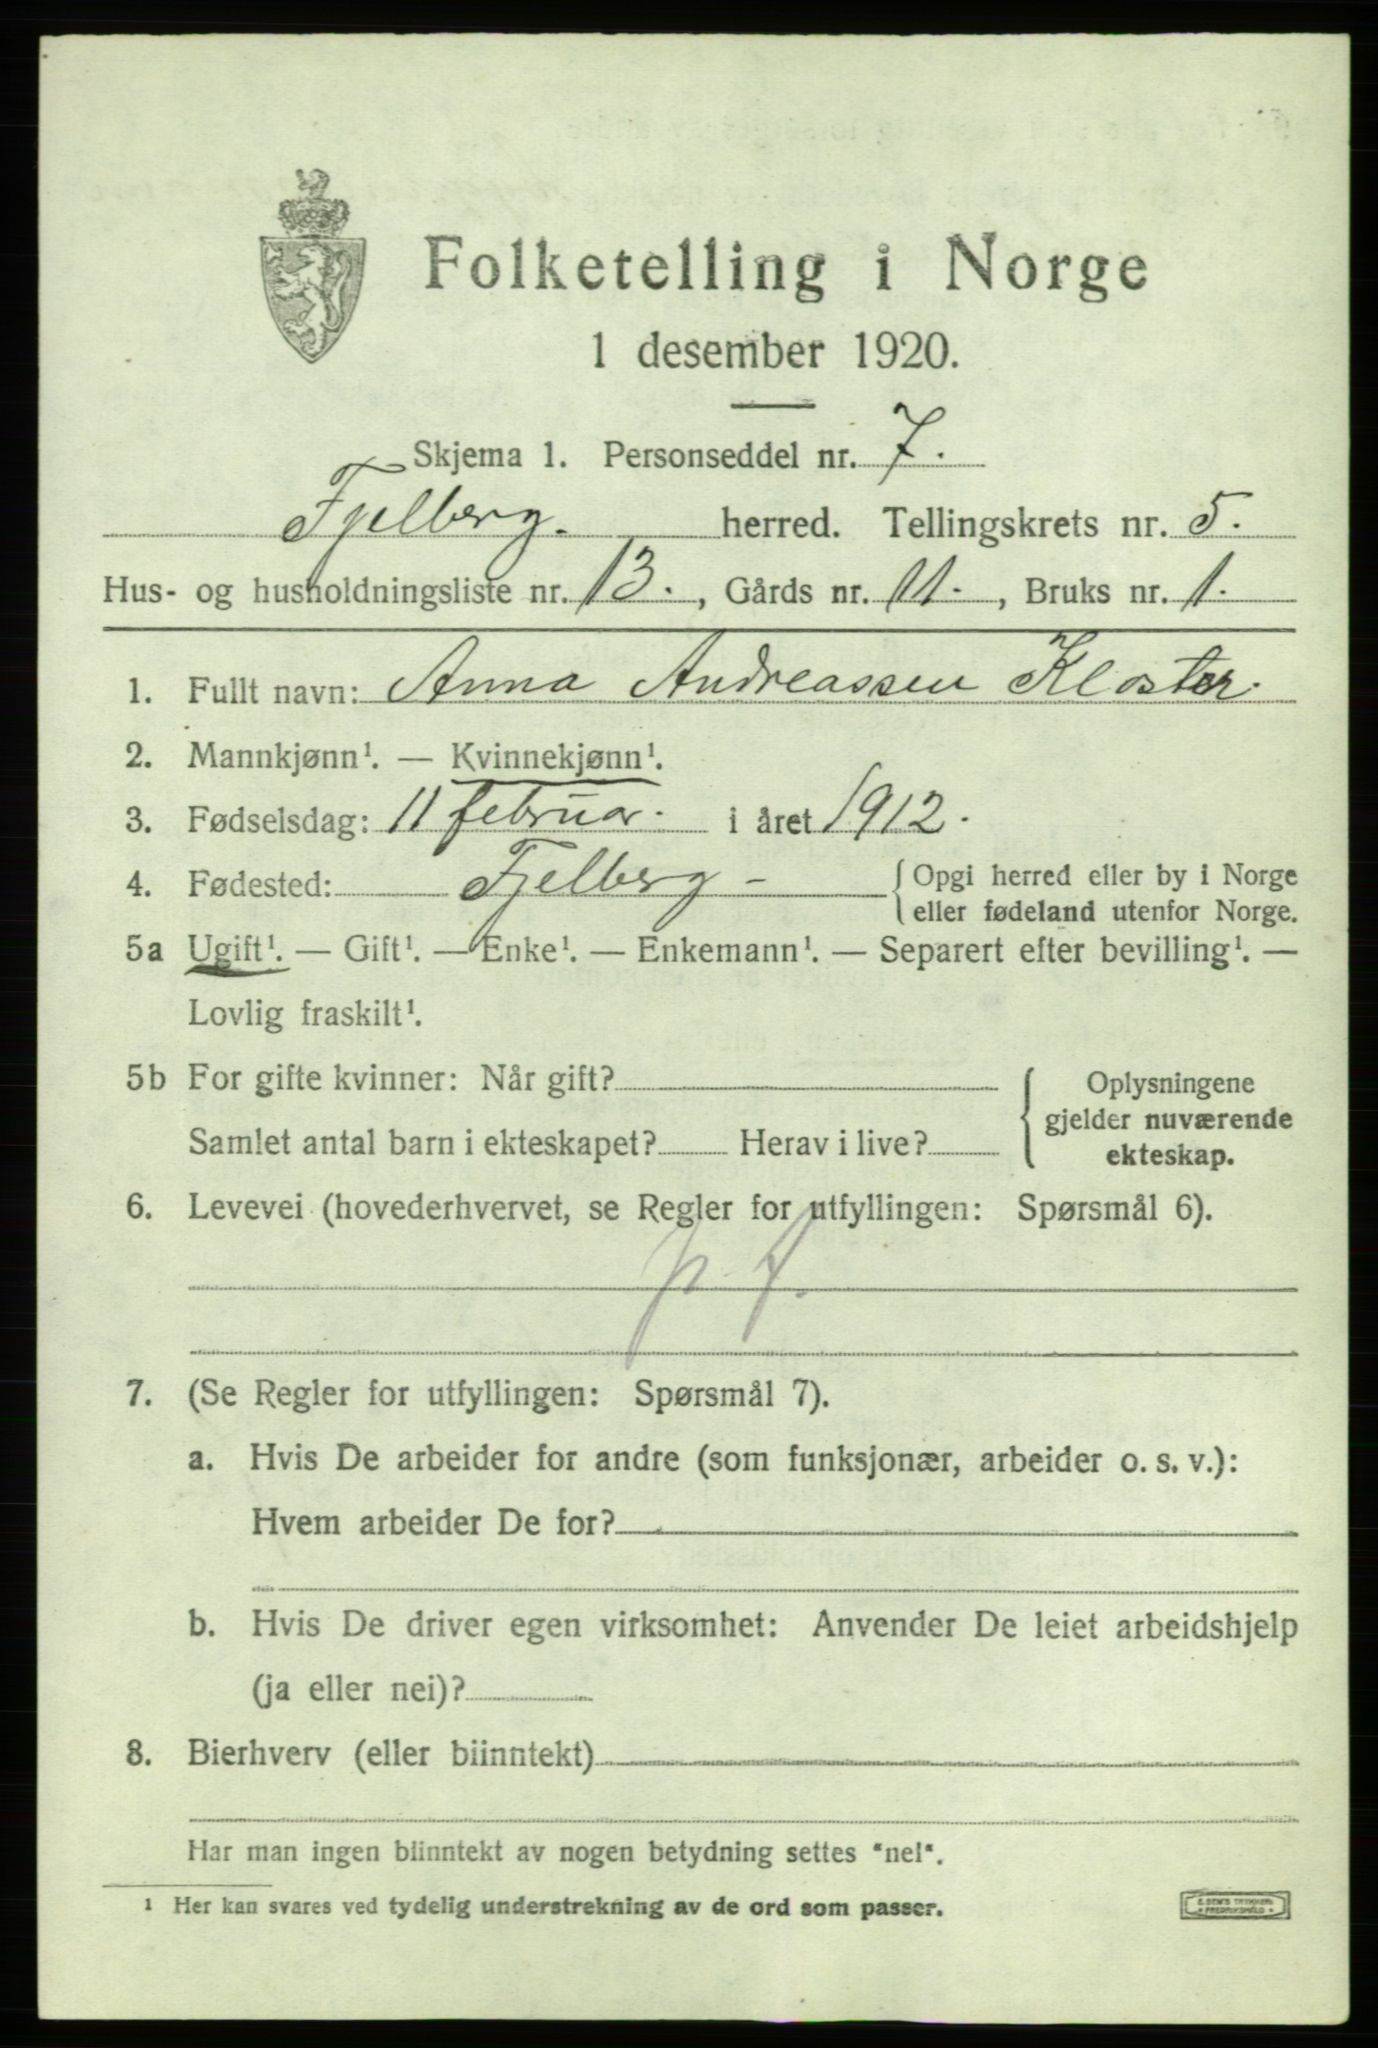 Folketelling i Norge
1 desember 1920.
Skjema 1. Personseddel nr. 7.
Fjelberg. herred. Tellingskrets nr. 5.
Hus- og husholdningsliste nr. 13., Gårds nr. 11., Bruks nr. 1.
1. Fullt navn: Anna Andreassen Kloster.
2. Mannkjønn¹. — Kvinnekjønn¹.
3. Fødselsdag: 11 februar. i året 1912.
4. Fødested: Fjelberg – { Opgi herred eller by i Norge
eller fødeland utenfor Norge.
5a Ugift¹. — Gift¹. — Enke¹. — Enkemann¹. — Separert efter bevilling¹. —
Lovlig fraskilt¹.
5b For gifte kvinner: Når gift?
Samlet antal barn i ekteskapet? Herav i live?
{ Oplysningene
gjelder nuværende
ekteskap.
6. Levevei (hovederhvervet, se Regler for utfyllingen: Spørsmål 6).
p. f.
7. (Se Regler for utfyllingen: Spørsmål 7).
a. Hvis De arbeider for andre (som funksjonær, arbeider o. s. v.):
Hvem arbeider De for?
b. Hvis De driver egen virksomhet: Anvender De leiet arbeidshjelp
(ja eller nei)?
8. Bierhverv (eller biinntekt)
Har man ingen biinntekt av nogen betydning settes "nei".
¹ Her kan svares ved tydelig understrekning av de ord som passer.